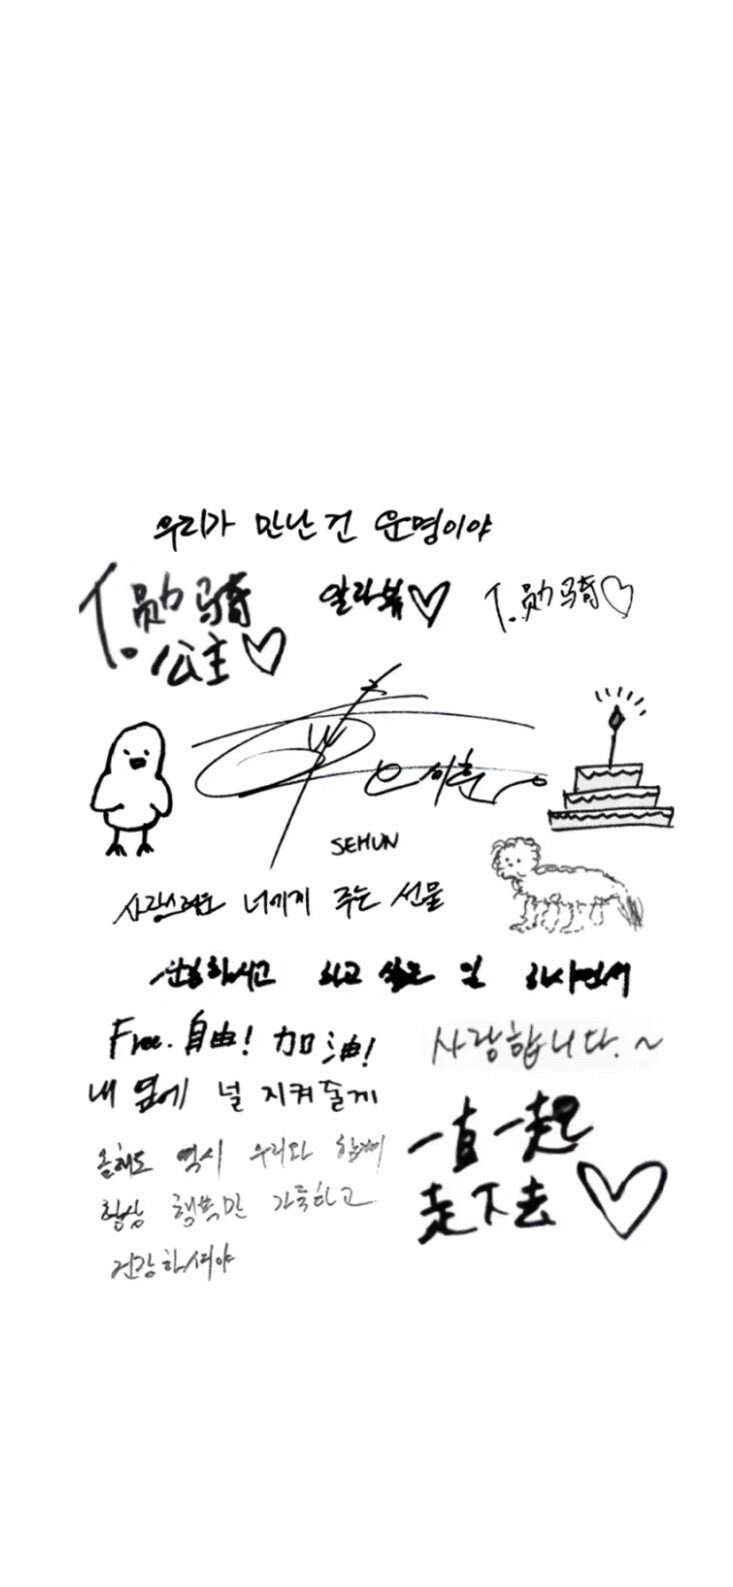 우리가 만난 건 운명이야
T.勋骑 알라뷰♡ T.勋骑♡
公主♡
오세훈
SEHUN
사랑스러운 너에게 주는 선물
하고 싶은 일 하시면서
Free. 自由! 加油! 사랑합니다.~
내 옆에 널 지켜줄게
一直一起
올해도 역시 우리와 함께
走下去♡
항상 행복만 가득하고
건강하셔야